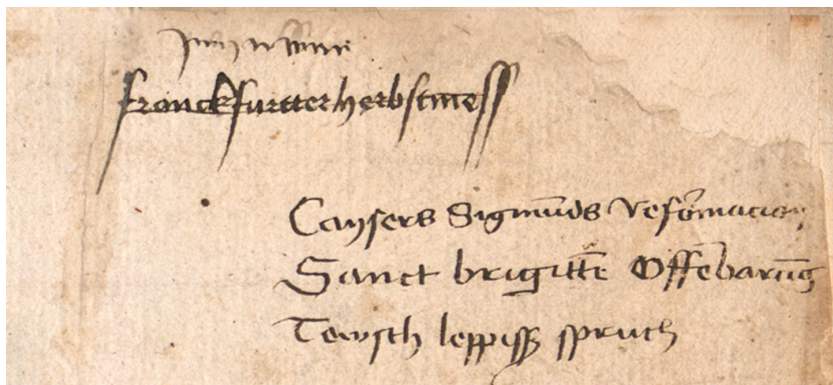 franckfurtter herbstmess
Caysers Sigmūds refōmacion
Sanct brigittē Offēbarūg
Tewsth leppiss spruch